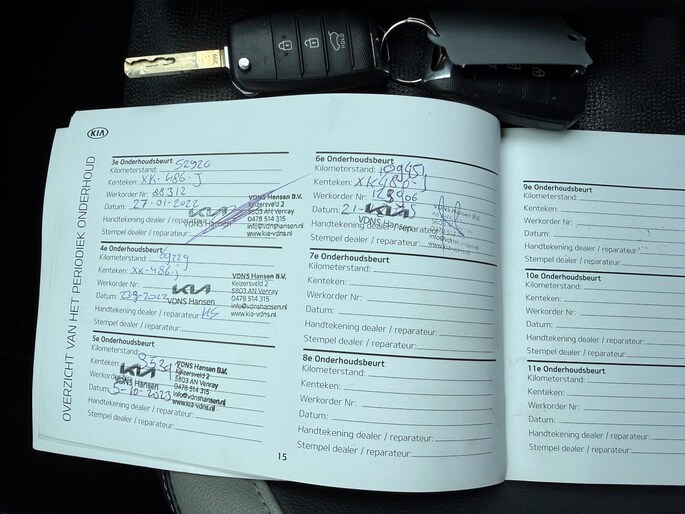 KIA
OVERZICHT VAN HET PERIODIEK ONDERHOUD
3e Onderhoudsbeurt
Kilometerstand: 52920
Kenteken: XK-486-J
Werkorder Nr: 88312
Datum: 27-01-2022
Handtekening dealer / reparateur:
Stempel dealer / reparateur:
KIA
VDNS Hansen B.V.
Keizersveld 2
5803 AN Venray
0478 514 315
info@vdnshansen.nl
www.kia-vdns.nl
4e Onderhoudsbeurt
Kilometerstand:
Kenteken: XK-486-J
Werkorder Nr:
Datum:
Handtekening dealer / reparateur: HS
Stempel dealer / reparateur:
KIA
VDNS Hansen
VDNS Hansen B.V.
Keizersveld 2
5803 AN Venray
0478 514 315
info@vdnshansen.nl
www.kia-vdns.nl
5e Onderhoudsbeurt
Kilometerstand:
Kenteken:
Werkorder
Datum: 5-10-2023
Handtekening dealer / reparateur:
Stempel dealer / reparateur:
KIA
VDNS Hansen
VDNS Hansen B.V.
Keizersveld 2
5803 AN Venray
0478 514 315
info@vdnshansen.nl
www.kia-vdns.nl
15
6e Onderhoudsbeurt
Kilometerstand:
Kenteken: XK486-J
Werkorder Nr: 128906
Datum: 21-
Handtekening dealer / reparateur:
Stempel dealer / reparateur:
KIA
VDNS Hansen
VDNS Hansen B.V.
Keizersveld 2
5803 AN Venray
0478 514 315
info@vdnshansen.nl
www.kia-vdns.nl
7e Onderhoudsbeurt
Kilometerstand:
Kenteken:
Werkorder Nr:
Datum:
Handtekening dealer / reparateur:
Stempel dealer / reparateur:
8e Onderhoudsbeurt
Kilometerstand:
Kenteken:
Werkorder Nr.:
Datum:
Handtekening dealer / reparateur:
Stempel dealer / reparateur:
9e Onderhoudsbeurt
Kilometerstand:
Kenteken:
Werkorder Nr:
Datum:
Handtekening dealer / reparateur:
Stempel dealer / reparateur:
10e Onderhoudsbeurt
Kilometerstand:
Kenteken:
Werkorder Nr.:
Datum:
Handtekening dealer / reparateur:
Stempel dealer / reparateur:
11e Onderhoudsbeurt
Kilometerstand:
Kenteken:
Werkorder Nr.:
Datum:
Handtekening dealer / reparateur:
Stempel dealer / reparateur:
HOLD